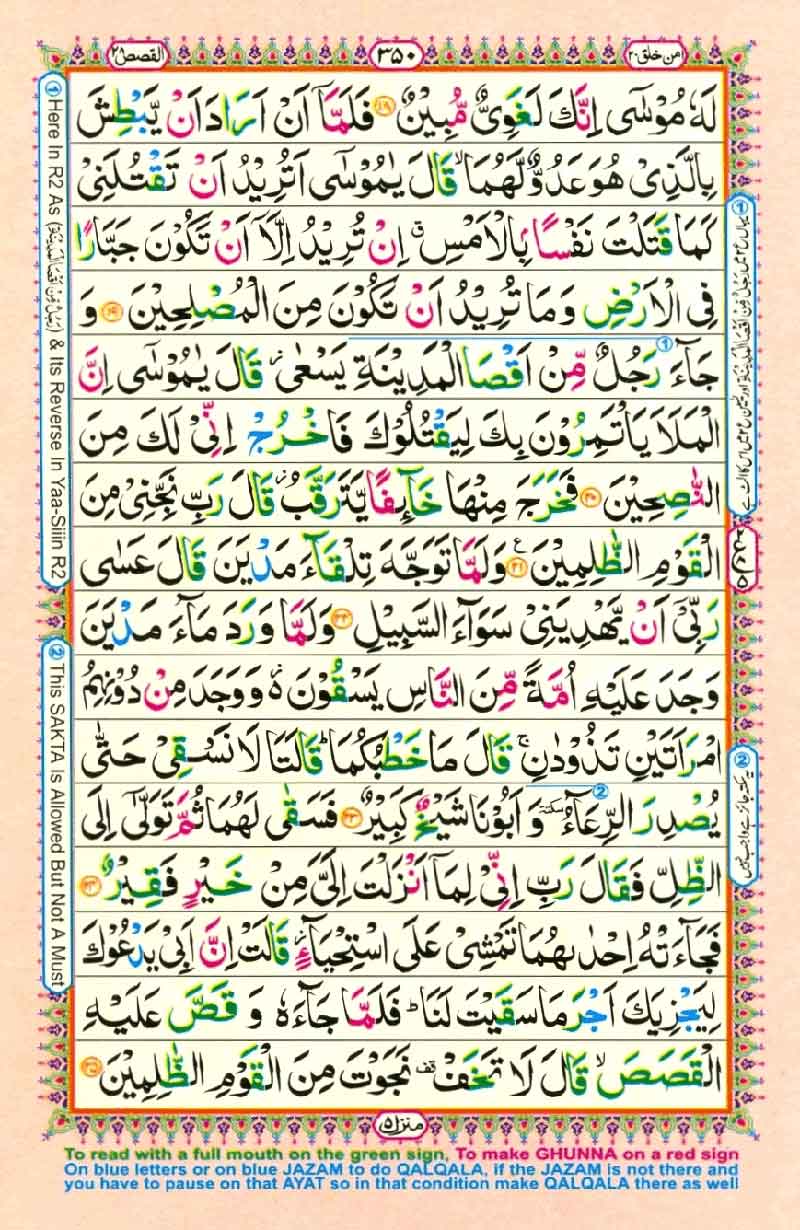 امن خلق ۲۰
۳۵۰
القصص ۲۸
لَهٗ مُوْسٰۤى اِنَّكَ لَغَوِیٌّ مُّبِیْنٌ ۱۸ فَلَمَّاۤ اَنْ اَرَادَ اَنْ یَّبْطِشَ
بِالَّذِیْ هُوَ عَدُوٌّ لَّهُمَا ۙ قَالَ یٰمُوْسٰۤى اَتُرِیْدُ اَنْ تَقْتُلَنِیْ
كَمَا قَتَلْتَ نَفْسًۢا بِالْاَمْسِ ۖ اِنْ تُرِیْدُ اِلَّاۤ اَنْ تَكُوْنَ جَبَّارًا
فِی الْاَرْضِ وَمَا تُرِیْدُ اَنْ تَكُوْنَ مِنَ الْمُصْلِحِیْنَ ۱۹ وَ
جَآءَ رَجُلٌ مِّنْ اَقْصَا الْمَدِیْنَةِ یَسْعٰى ؗ قَالَ یٰمُوْسٰۤى اِنَّ
الْمَلَاَ یَاْتَمِرُوْنَ بِكَ لِیَقْتُلُوْكَ فَاخْرُجْ اِنِّیْ لَكَ مِنَ
النّٰصِحِیْنَ ۲۰ فَخَرَجَ مِنْهَا خَآىِٕفًا یَّتَرَقَّبُ ؗ قَالَ رَبِّ نَجِّنِیْ مِنَ
الْقَوْمِ الظّٰلِمِیْنَ ۲۱ ع وَلَمَّا تَوَجَّهَ تِلْقَآءَ مَدْیَنَ قَالَ عَسٰى
رَبِّیْۤ اَنْ یَّهْدِیَنِیْ سَوَآءَ السَّبِیْلِ ۲۲ وَلَمَّا وَرَدَ مَآءَ مَدْیَنَ
وَجَدَ عَلَیْهِ اُمَّةً مِّنَ النَّاسِ یَسْقُوْنَ ۬ه وَوَجَدَ مِنْ دُوْنِهِمُ
امْرَاَتَیْنِ تَذُوْدٰنِ ۚ قَالَ مَا خَطْبُكُمَا ؕ قَالَتَا لَا نَسْقِیْ حَتّٰى
یُصْدِرَ الرِّعَآءُ سكتة وَ اَبُوْنَا شَیْخٌ كَبِیْرٌ ۲۳ فَسَقٰى لَهُمَا ثُمَّ تَوَلّٰۤى اِلَى
الظِّلِّ فَقَالَ رَبِّ اِنِّیْ لِمَاۤ اَنْزَلْتَ اِلَیَّ مِنْ خَیْرٍ فَقِیْرٌ ۲۴
فَجَآءَتْهُ اِحْدٰىهُمَا تَمْشِیْ عَلَى اسْتِحْیَآءٍ ؗ قَالَتْ اِنَّ اَبِیْ یَدْعُوْكَ
لِیَجْزِیَكَ اَجْرَ مَا سَقَیْتَ لَنَا ؕ فَلَمَّا جَآءَهٗ وَ قَصَّ عَلَیْهِ
الْقَصَصَ ۙ قَالَ لَا تَخَفْ قف نَجَوْتَ مِنَ الْقَوْمِ الظّٰلِمِیْنَ ۲۵
منزل ۵
① Here In R2 As (رَجُلٌ مِّنْ اَقْصَا الْمَدِیْنَةِ) & Its Reverse In Yaa-Siin R2
② This SAKTA Is Allowed But Not A Must
② یہ سکتہ جائز ہے واجب نہیں
To read with a full mouth on the green sign, To make GHUNNA on a red sign
On blue letters or on blue JAZAM to do QALQALA, if the JAZAM is not there and
you have to pause on that AYAT so in that condition make QALQALA there as well